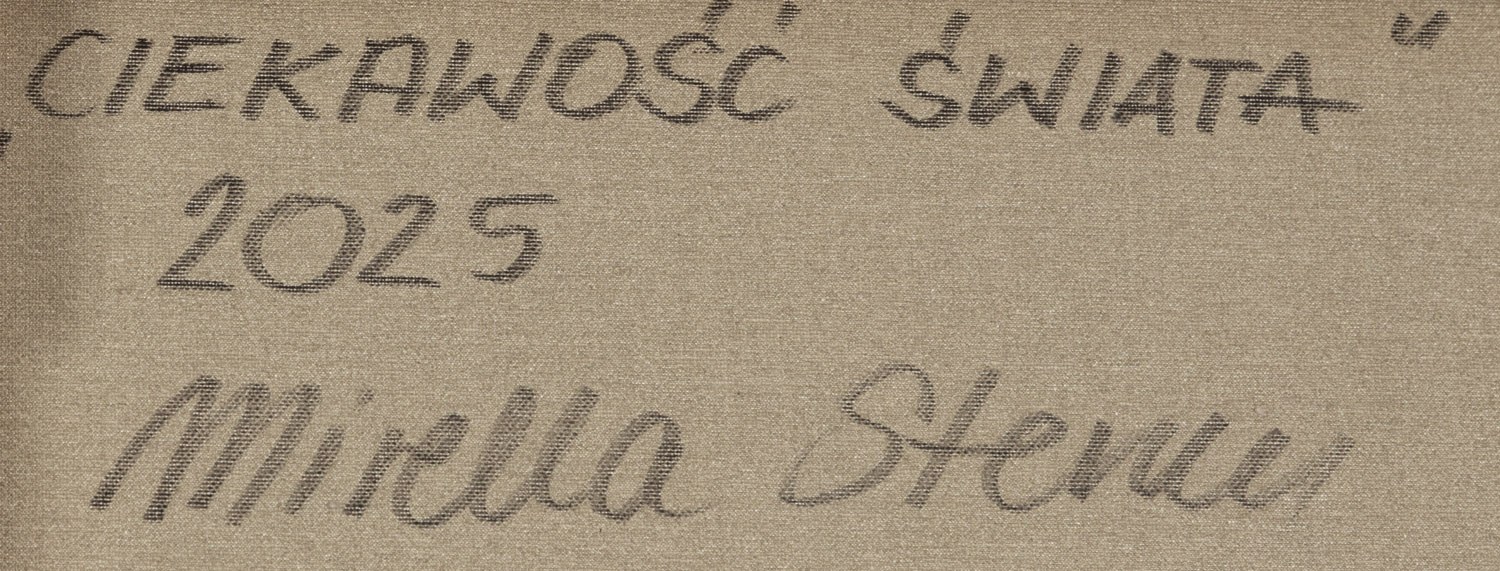 „CIEKAWOŚĆ ŚWIATA"
2025
Mirella Stern